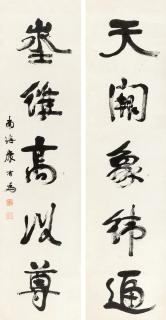 天闕象緯逼
維高以尊
南海康有為